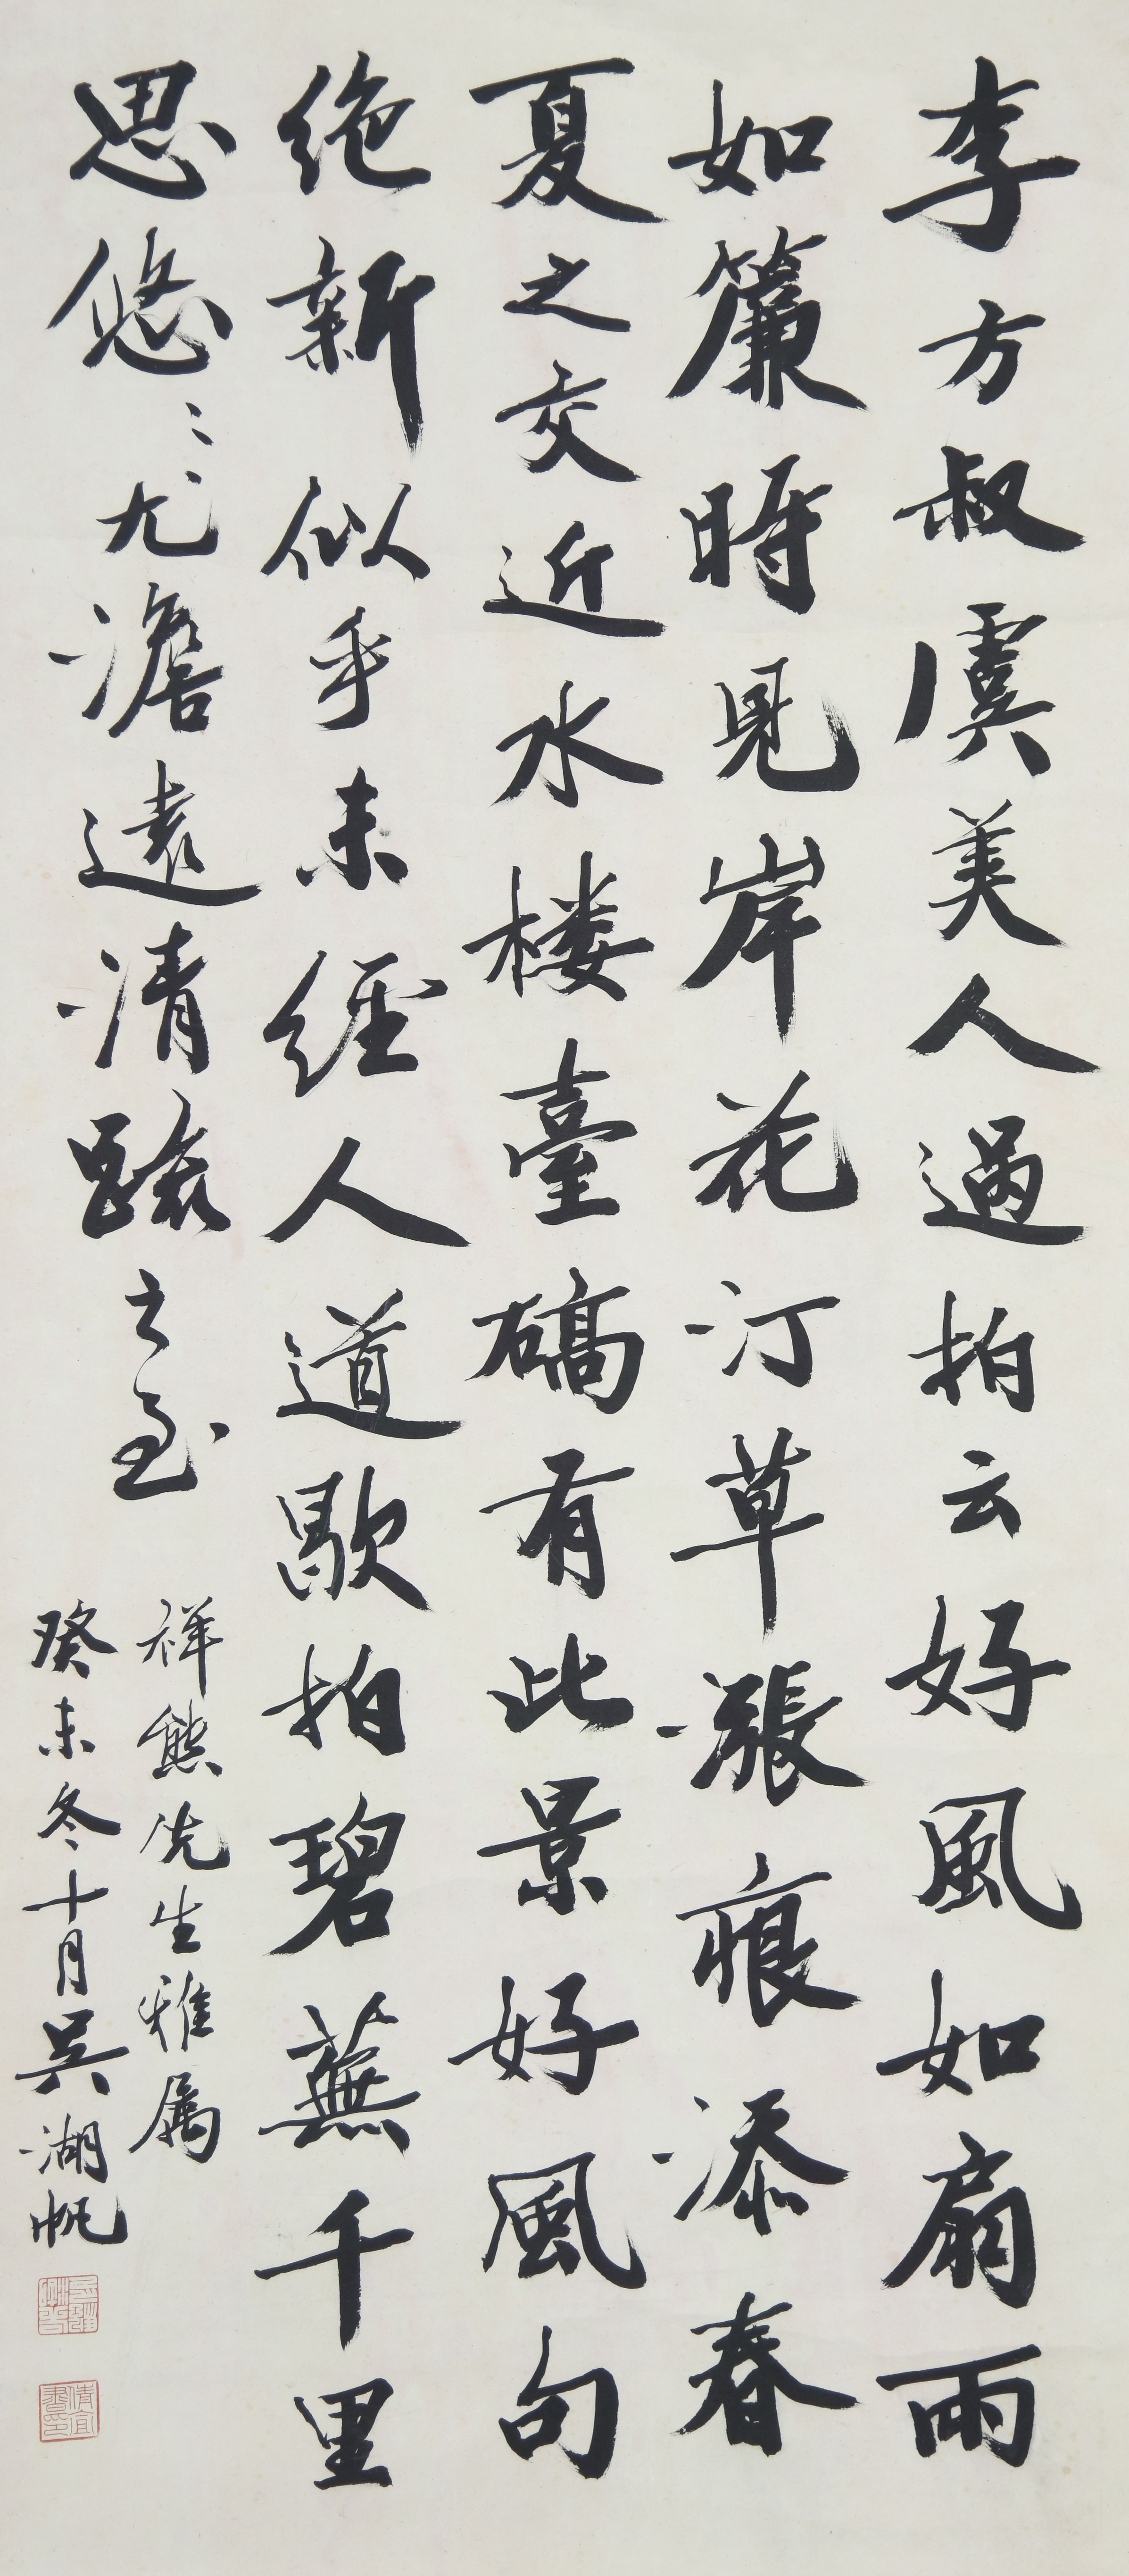 李方叔虞美人過拍云好風如扇雨
如簾時見岸花汀草漲痕添春
夏之交近水楼臺碻有此景好風句
绝新似乎未經人道歇拍碧蕪千里
思悠〻尤澹遠清雋之至
祥熊先生雅属
癸未冬十月吳湖帆